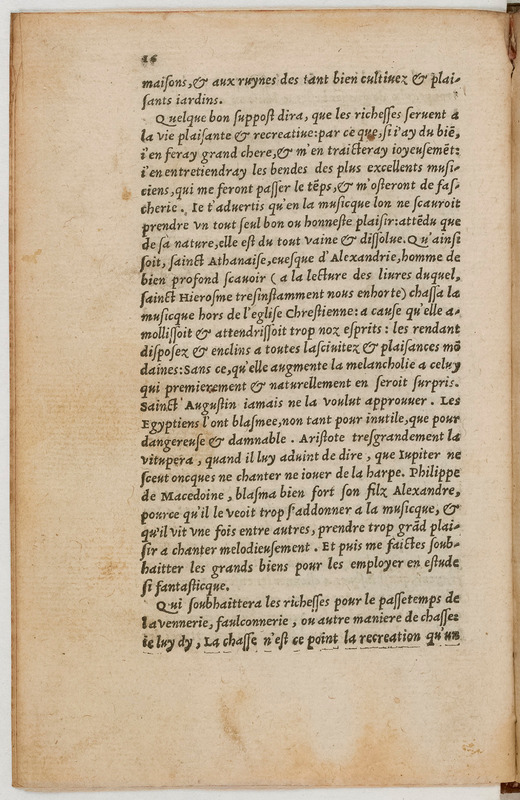 16
maiſons,& aux ruynes des tant bien cultiuez & plai-
ſants iardins.
Quelque bon ſuppoſt dira, que les richeſſes ſeruent a
la vie plaiſante & recreatiue:par ce que,ſi i'ay du biẽ,
i'en feray grand chere,& m'en traicteray ioyeuſemẽt:
i'en entretiendray les bendes des plus excellents muſi-
ciens,qui me feront paſſer le tẽps,& m'oſteront de faſ-
cherie. Ie t'aduertis qu'en la muſicque lon ne ſcauroit
prendre vn tout ſeul bon ou honneſte plaiſir:attẽdu que
de ſa nature,elle eſt du tout vaine & diſſolue.Qu'ainſi
ſoit, ſainct Athanaiſe,eueſque d'Alexandrie,homme de
bien profond ſcauoir ( a la lecture des liures duquel,
ſainct Hieroſme treſinſtamment nous enhorte) chaſſa la
muſicque hors de l'egliſe Chreſtienne: a cauſe qu'elle a-
molliſſoit & attendriſſoit trop noz eſprits : les rendant
diſpoſez & enclins a toutes laſciuitez & plaiſances mõ
daines:Sans ce,qu'elle augmente la melancholie a celuy
qui premierement & naturellement en ſeroit ſurpris.
Sainct Auguſtin iamais ne la voulut approuuer . Les
Egyptiens l'ont blaſmee,non tant pour inutile,que pour
dangereuſe & damnable . Ariſtote treſgrandement la
vitupera , quand il luy aduint de dire , que Iupiter ne
ſceut oncques ne chanter ne iouer de la harpe. Philippe
de Macedoine , blaſma bien fort ſon filz Alexandre,
pource qu'il le veoit trop ſ'addonner a la muſicque, &
qu'il vit vne fois entre autres, prendre trop grãd plai-
ſir a chanter melodieuſement . Et puis me faictes ſoub-
haitter les grands biens pour les employer en eſtude
ſi fantaſticque.
Qui ſoubhaittera les richeſſes pour le paſſetemps de
la vennerie, faulconnerie , ou autre maniere de chaſſe:
ie luy dy , La chaſſe n'eſt ce point la recreation qu'un